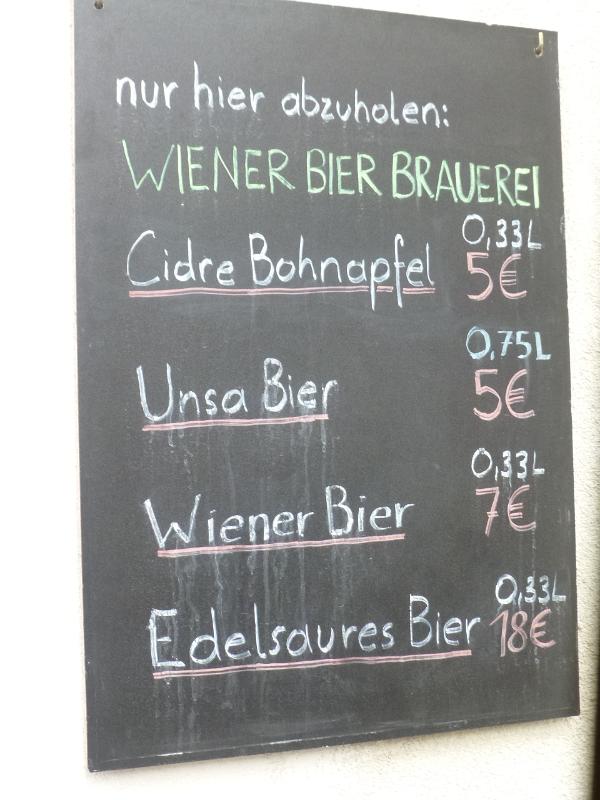 nur hier abzuholen:
WIENER BIER BRAUEREI
Cidre Bohnapfel 0,33L
5€
Unsa Bier 0,75L
5€
Wiener Bier 0,33L
7€
Edelsaures Bier 0,33L
18€